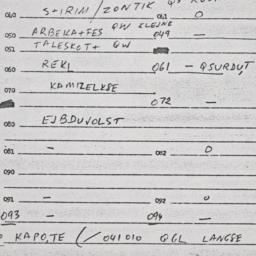 040 S+IRIM/ZONTIK
041 O
050 ARBEKA+FES QW KLEJNE
049 —
051 TALESKOT+ QW
060 REKL 061 — QSURDUT
070 KAMIZELKSE
072 —
080 EJBDUVOLST
081 — 082 O
090
091 — 092 O
093 — 094 —
KAPO,TE (/041010 QGL LANGSE